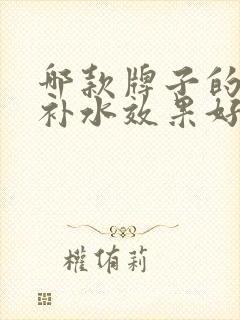 哪款牌子的
补水效果好
權侑莉